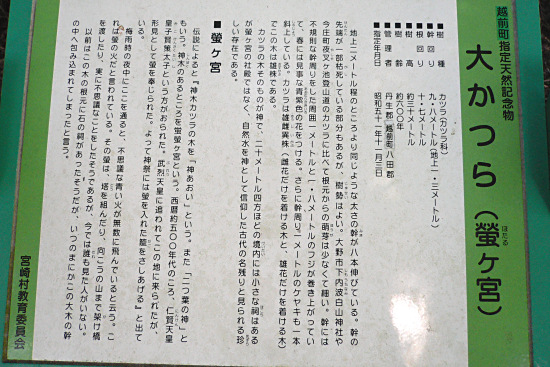 越前町指定天然記念物
大かつら(螢ヶ宮)
ほたる
■樹種 カツラ(カツラ科)
■幹回り 九・八メートル(地上一・三メートル)
■根回り 十七メートル
■樹高 約三十メートル
■樹齢 約六〇〇年
■管理者 丹生郡越前町八田郡
■指定年月日 昭和五十一年十一月三日
地上二メートル程のところより同じような太さの幹が八本伸びている。幹の
先端が一部枯死している部分もあるが、樹勢はよい。大野市下打波白山神社や
今庄町夜叉ケ池登山道のカツラに比べて根元からの萌芽は少なくて細い。幹には
不規則な幹周りをした周囲一メートルと一・八メートルのフジが巻き上がってい
て、春には見事な青紫色の花をつける。さらに幹周り一メートルのケヤキも一本
斜上している。カツラは雄雌異株(雌花だけを着ける木と、雄花だけを着ける木)
でこの木は雄株である。
カツラの木そのものが神で、二十メートル四方ほどの境内には小さな祠はある
が螢ヶ宮の社殿ではなく、自然水を神として信仰した古代の名残りと見られる珍
しい存在である。
■螢ヶ宮
伝説によると『神木カツラの木を「神あおい」という。また「二つ葉の神」と
もいう。神木のあるところを螢ヶ宮という。西暦約五〇〇年代のころ、仁賢天皇
皇子賢策太子という方がおられた。武烈天皇に追われてこの地に来られたが、
形見として螢を奉じられた。よって神祭には螢を入れた籠をさしあげる』と出て
いる。
梅雨時の夜中にここを通ると、不思議な青い火が無数に飛んでいると云う。こ
れは螢の火だと言われている。その螢は、塔を組んだり、向こうの山まで架け橋
を渡したり、実に不思議なことをしたそうであるが、今では誰も見た人がいない。
以前はこの木の根元に石の祠があったそうだが、いつのまにかこの大木の幹
の中へ包み込まれてしまったと言う。
宮崎村教育委員会